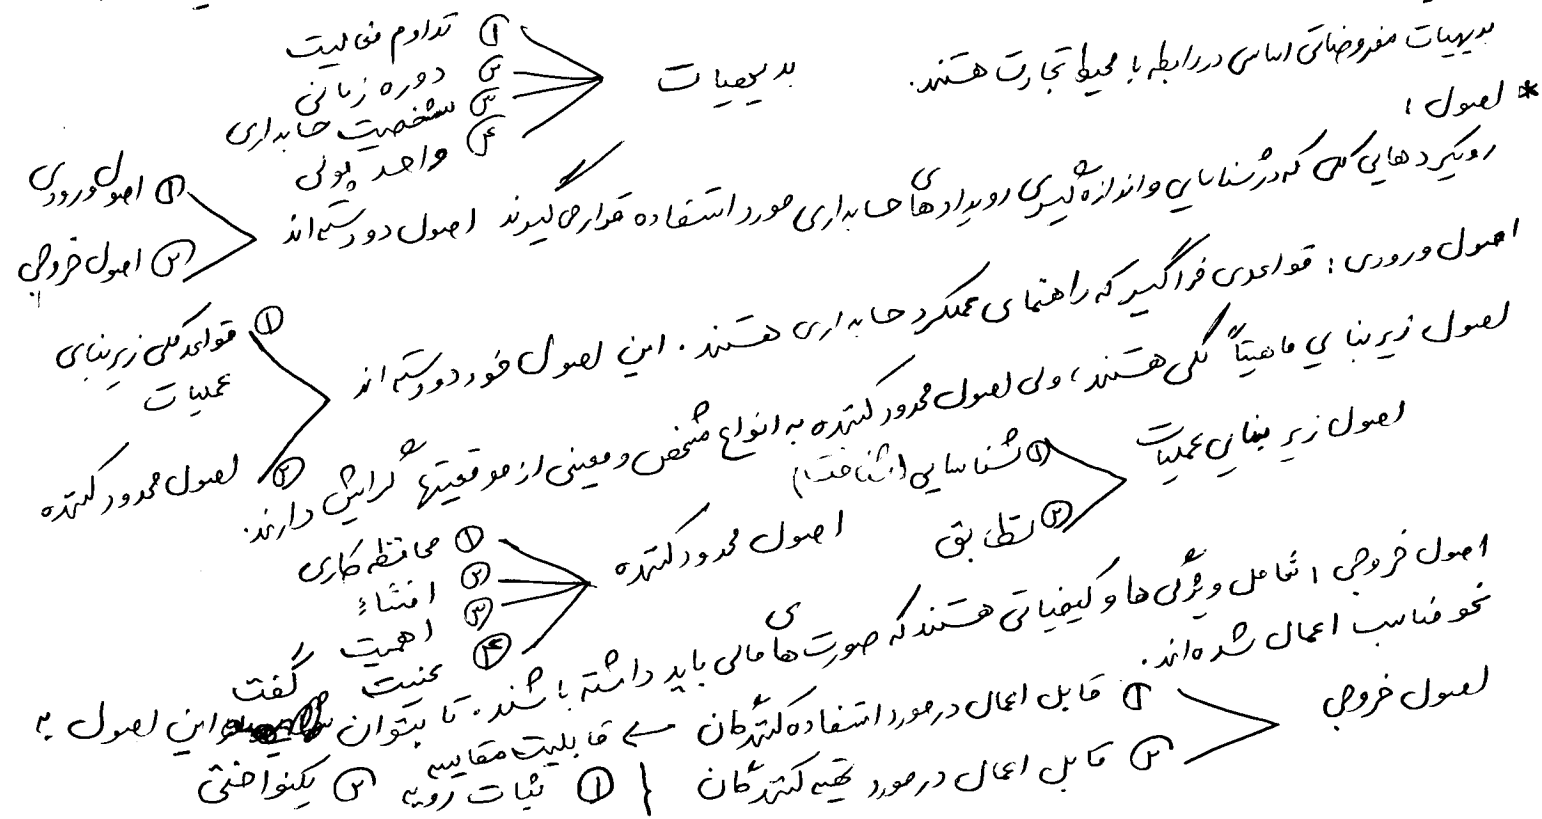 بدیهیات مفروضاتی اساسی در رابطه با محیط تجارت هستند.
بدیهیات
① تداوم فعالیت
② دوره زمانی
③ شخصیت حسابداری
④ واحد پولی
* اصول :
رویکردهایی کلی که در شناسایی و اندازه گیری رویدادهای حسابداری مورد استفاده قرار می گیرند اصول دو دسته اند
① اصول ورودی
② اصول خروجی
اصول ورودی : قواعدی فراگیر که راهنمای عملکرد حسابداری هستند. این اصول خود دو دسته اند
① قواعد کلی زیربنای
عملیات
② اصول محدود کننده
اصول زیر بنایی ماهیتاً کلی هستند، ولی اصول محدود کننده به انواع مشخص و معینی از موقعیتها گرایش دارند.
اصول زیر بنایی عملیات
① شناسایی (شناخت)
② تطابق
اصول محدود کننده
① محافظه کاری
② افشاء
③ اهمیت
④ عینیت
اصول خروجی : شامل ویژگی ها و کیفیاتی هستند که صورت های مالی باید داشته باشند. تا بتوان گفت این اصول به
نحو مناسب اعمال شده اند.
اصول خروجی
① قابل اعمال در مورد استفاده کنندگان ← قابلیت مقایسه
② قابل اعمال در مورد تهیه کنندگان { ① ثبات رویه ② یکنواختی